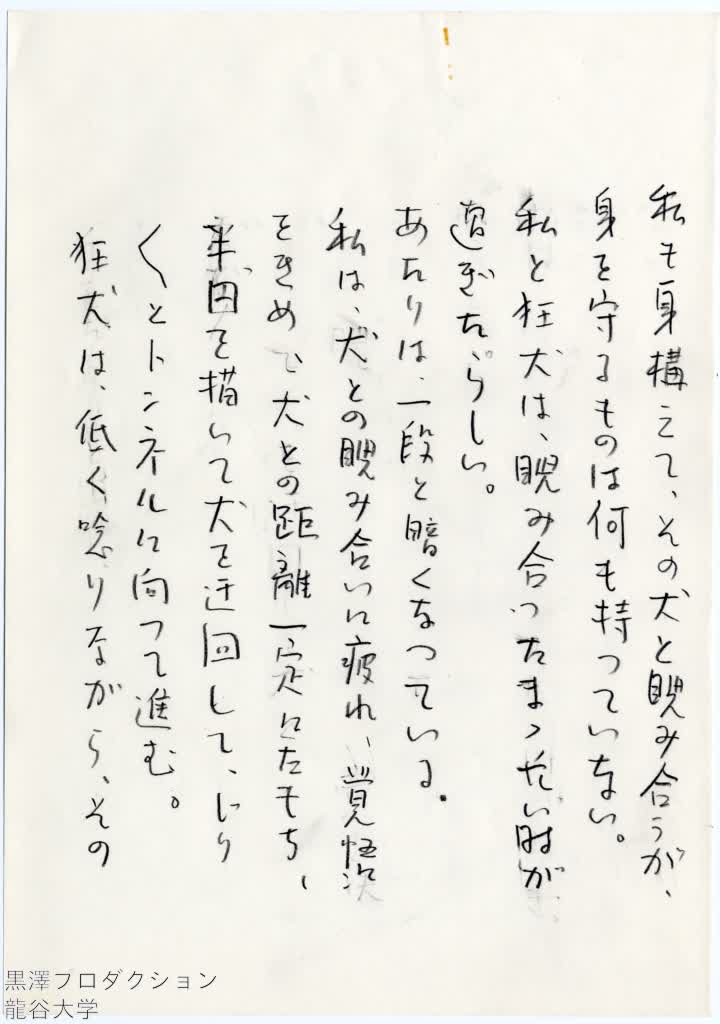 私も身構えて、その犬と睨み合うが、
身を守るものは何も持つていない。
私と狂犬は、睨み合つたまゝ 時が
過ぎたらしい。
あたりは、一段と暗くなつている。
私は、犬との睨み合いに疲れ、覚悟
をきめて犬との距離一定にたもち、
半円を描いて犬を迂回して、じり
くとトンネルに向つて進む。
狂犬は、低く唸りながら、その
黒澤プロダクション
龍谷大学